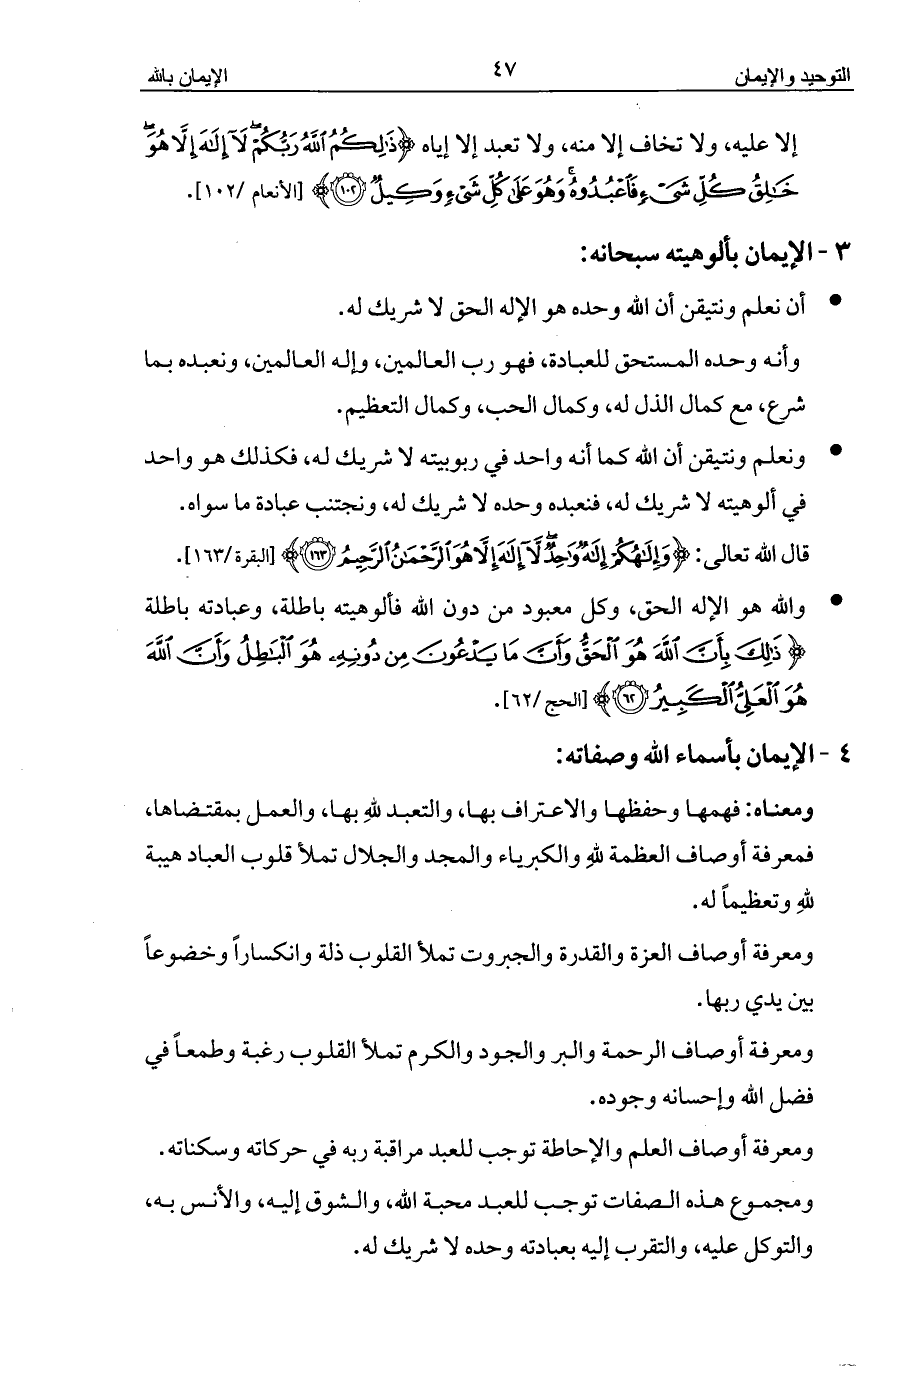 التوحيد والإيمان ٤٧ الإيمان بالله
إلا عليه، ولا تخاف إلا منه، ولا تعبد إلا إياه ﴿ذَٰلِكُمُ ٱللَّهُ رَبُّكُمْ ۖ لَآ إِلَٰهَ إِلَّا هُوَ ۖ
خَٰلِقُ كُلِّ شَىْءٍ فَٱعْبُدُوهُ ۚ وَهُوَ عَلَىٰ كُلِّ شَىْءٍ وَكِيلٌ ١٠٢﴾ [الأنعام /١٠٢].
٣ - الإيمان بألوهيته سبحانه:
• أن نعلم ونتيقن أن الله وحده هو الإله الحق لا شريك له.
وأنه وحده المستحق للعبادة، فهو رب العالمين، وإله العالمين، ونعبده بما
شرع، مع كمال الذل له، وكمال الحب، وكمال التعظيم.
• ونعلم ونتيقن أن الله كما أنه واحد في ربوبيته لا شريك له، فكذلك هو واحد
في ألوهيته لا شريك له، فنعبده وحده لا شريك له، ونجتنب عبادة ما سواه.
قال الله تعالى: ﴿وَإِلَٰهُكُمْ إِلَٰهٌ وَٰحِدٌ ۖ لَّآ إِلَٰهَ إِلَّا هُوَ ٱلرَّحْمَٰنُ ٱلرَّحِيمُ ١٦٣﴾ [البقرة /١٦٣].
• والله هو الإله الحق، وكل معبود من دون الله فألوهيته باطلة، وعبادته باطلة
﴿ذَٰلِكَ بِأَنَّ ٱللَّهَ هُوَ ٱلْحَقُّ وَأَنَّ مَا يَدْعُونَ مِن دُونِهِۦ هُوَ ٱلْبَٰطِلُ وَأَنَّ ٱللَّهَ
هُوَ ٱلْعَلِىُّ ٱلْكَبِيرُ ٦٢﴾ [الحج /٦٢].
٤ - الإيمان بأسماء الله وصفاته:
ومعناه: فهمها وحفظها والاعتراف بها، والتعبد للهِ بها، والعمل بمقتضاها،
فمعرفة أوصاف العظمة للهِ والكبرياء والمجد والجلال تملأ قلوب العباد هيبة
للهِ وتعظيماً له.
ومعرفة أوصاف العزة والقدرة والجبروت تملأ القلوب ذلة وانكساراً وخضوعاً
بين يدي ربها.
ومعرفة أوصاف الرحمة والبر والجود والكرم تملأ القلوب رغبة وطمعاً في
فضل الله وإحسانه وجوده.
ومعرفة أوصاف العلم والإحاطة توجب للعبد مراقبة ربه في حركاته وسكناته.
ومجموع هذه الصفات توجب للعبد محبة الله، والشوق إليه، والأنس به،
والتوكل عليه، والتقرب إليه بعبادته وحده لا شريك له.